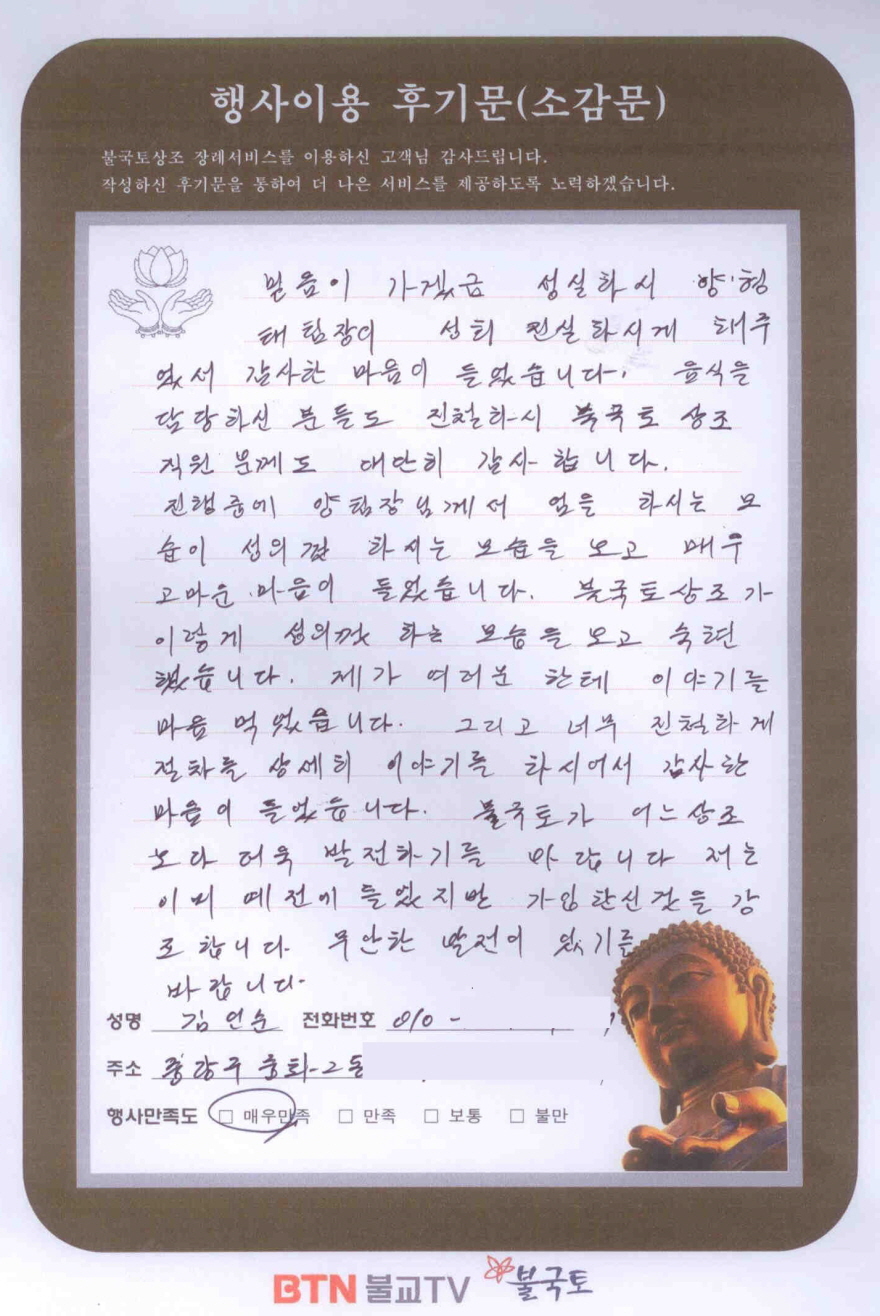 행사이용 후기문(소감문)
불국토상조 장례서비스를 이용하신 고객님 감사드립니다.
작성하신 후기문을 통하여 더 나은 서비스를 제공하도록 노력하겠습니다.
믿음이 가겠금 성실하시 양·형
태 팀장이 성희 진실하시게 해주
었서 감사한 마음이 들었습니다. 음식을
담당하신 분들도 친절하시 불국토 상조
직원 분께도 대단히 감사 합니다.
진행중에 양팀장님께서 염을 하시는 모
습이 성의껏 하시는 모습을 보고 매우
고마운 마음이 들었습니다. 불국토상조가
이렇게 성의껏 하는 모습을 보고 숙련
했습니다. 제가 여러분 한테 이야기를
마음 먹었습니다. 그리고 너무 친절하게
절차를 상세히 이야기를 하시어서 감사한
마음이 들었습니다. 불국토가 어느상조
보다 더욱 발전하기를 바랍니다 저는
이미 예전에 들었지만 가입한신것을 강
조 합니다. 무안한 발전이 있기를
바랍니다.
성명 김언순 전화번호 010 -
주소 중랑구 중화-2동
행사만족도 □ 매우만족 □ 만족 □ 보통 □ 불만
BTN 불교TV 불국토